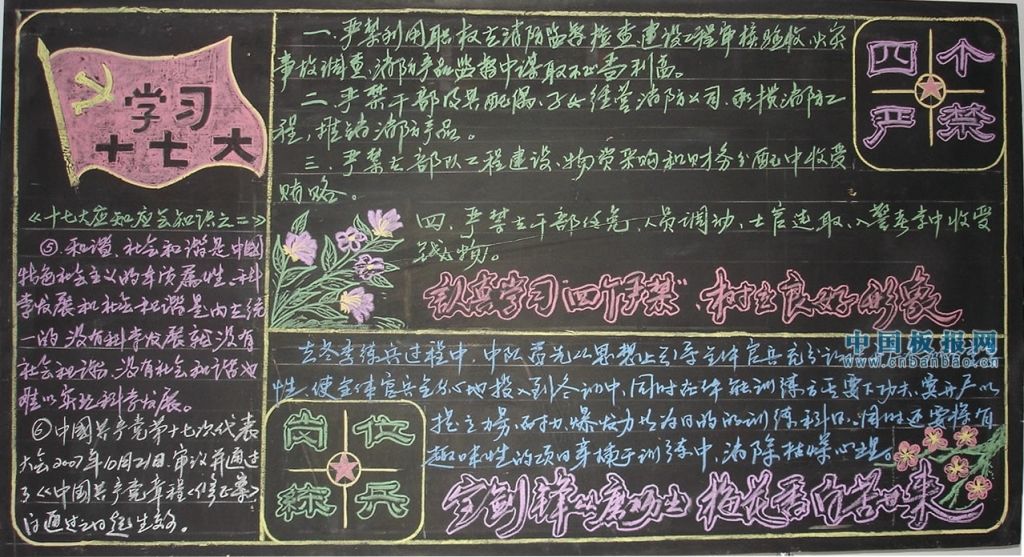 学习
十七大
《十七大应知应会知识之二》
⑤和谐，社会和谐是中国
特色社会主义的本质属性，科
学发展和社会和谐是内在统
一的，没有科学发展就没有
社会和谐，没有社会和谐也
难以实现科学发展。
⑥中國共产党第十七次代表
大会2007年10月21日，审议并通过
了《中国共产党章程《修正案》
自通过之日起生效。
一、严禁利用职权在消防监督检查、建设工程审核验收、火灾
事故调查、消防产品监督中谋取不正当利益。
二、严禁干部及其配偶、子女经营消防公司，承揽消防工
程，推销消防产品。
三、严禁在部队工程建设、物资采购和财务分配中收受
贿赂。
四、严禁在干部任免，人员调动，士官选取，入警考学中收受
钱物。
认真学习"四个严禁"，树立良好形象
四个
严禁
在冬季练兵过程中，中队首先从思想上引导全体官兵充分认
性，使全体官兵全身心地投入到冬训中，同时在体能训练方面要下功夫，要开户以
提高力量、耐力、爆发力为目的的训练科目，同时还要将有
趣味性的项目穿插于训练中，消除枯燥心理。
岗位
练兵
宝剑锋从磨砺出 梅花香自苦寒来
中国板报网
www.cnbanbao.cn